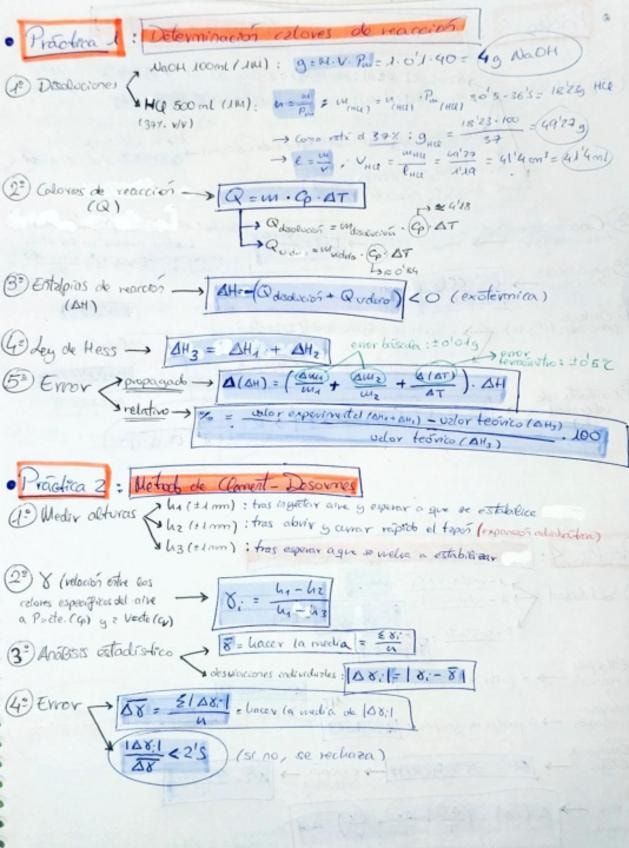 • Práctica 1 : Determinación calores de reacción
1º Disoluciones
NaOH 100ml (1M) : g = M · V · Pm = 1 · 0'1 · 40 = 4g NaOH
HCl 500 ml (1M) : n = m/Pm = m(HCl) = n(HCl) · Pm(HCl) = 0'5 · 36'5 = 18'23g HCl
(37% v/v)
→ Como está al 37% : gHCl = 18'23 · 100 / 37 = 49'27g
→ ρ = m/V ; VHCl = mHCl/ρHCl = 49'27/1'19 = 41'4 cm³ = 41'4 ml
2º Calores de reacción → Q = m · Cp · ΔT
(Q)
→ Qdisolución = mdisolución · Cp · ΔT → ≈ 4'18
→ Qvidrio = mvidrio · Cp · ΔT
→ = 0'84
3º Entalpías de reacción → ΔH = -(Qdisolución + Qvidrio) < 0 (exotérmica)
(ΔH)
4º Ley de Hess → ΔH₃ = ΔH₁ + ΔH₂
error báscula : ±0'01g
error termómetro : ±0'5ºC
5º Error
propagado → Δ(ΔH) = (Δm₁/m₁ + Δm₂/m₂ + Δ(ΔT)/ΔT) · ΔH
relativo → % = valor experimental (ΔH₁+ΔH₂) - valor teórico (ΔH₃) / valor teórico (ΔH₃) · 100
• Práctica 2 : Método de Clement-Desormes
1º Medir alturas
h₁ (±1mm) : tras inyectar aire y esperar a que se estabilice
h₂ (±1mm) : tras abrir y cerrar rápido el tapón (expansión adiabática)
h₃ (±1mm) : tras esperar a que se vuelva a estabilizar
2º γ (relación entre los
calores específicos del aire
a P=cte. (Cp) y V=cte (Cv)
→ γi = h₁ - h₂ / h₁ - h₃
3º Análisis estadístico
γ̄ = hacer la media = Σγi / n
desviaciones individuales : |Δγi| = |γi - γ̄|
4º Error
Δγ̄ = Σ|Δγi| / n = hacer la media de |Δγi|
|Δγi| / Δγ̄ < 2'5 (si no, se rechaza)